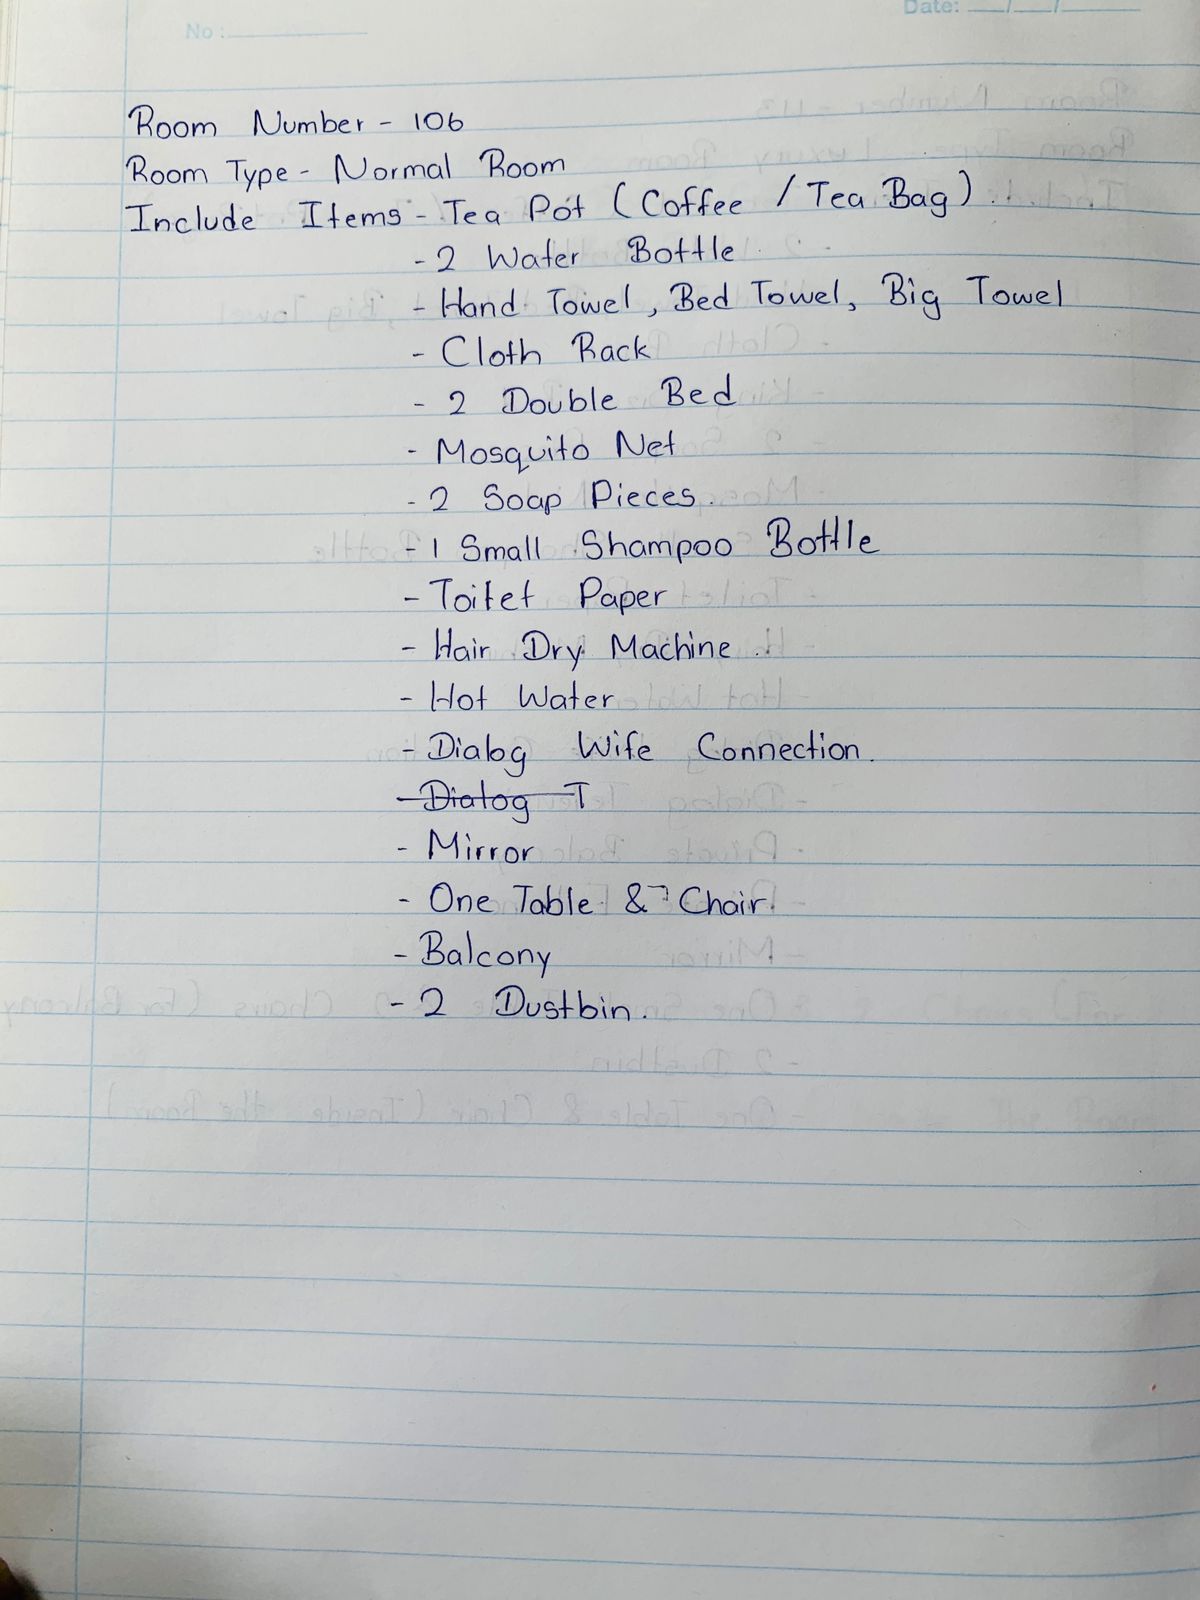 No :
Date: __/__/____
Room Number - 106
Room Type - Normal Room
Include Items - Tea Pot (Coffee / Tea Bag).
- 2 Water Bottle.
- Hand Towel, Bed Towel, Big Towel
- Cloth Rack
- 2 Double Bed
- Mosquito Net
- 2 Soap Pieces.
- 1 Small Shampoo Bottle
- Toitet Paper
- Hair Dry Machine.
- Hot Water
- Dialog Wife Connection.
- Dialog T
- Mirror
- One Table & Chair
- Balcony
- 2 Dustbin.